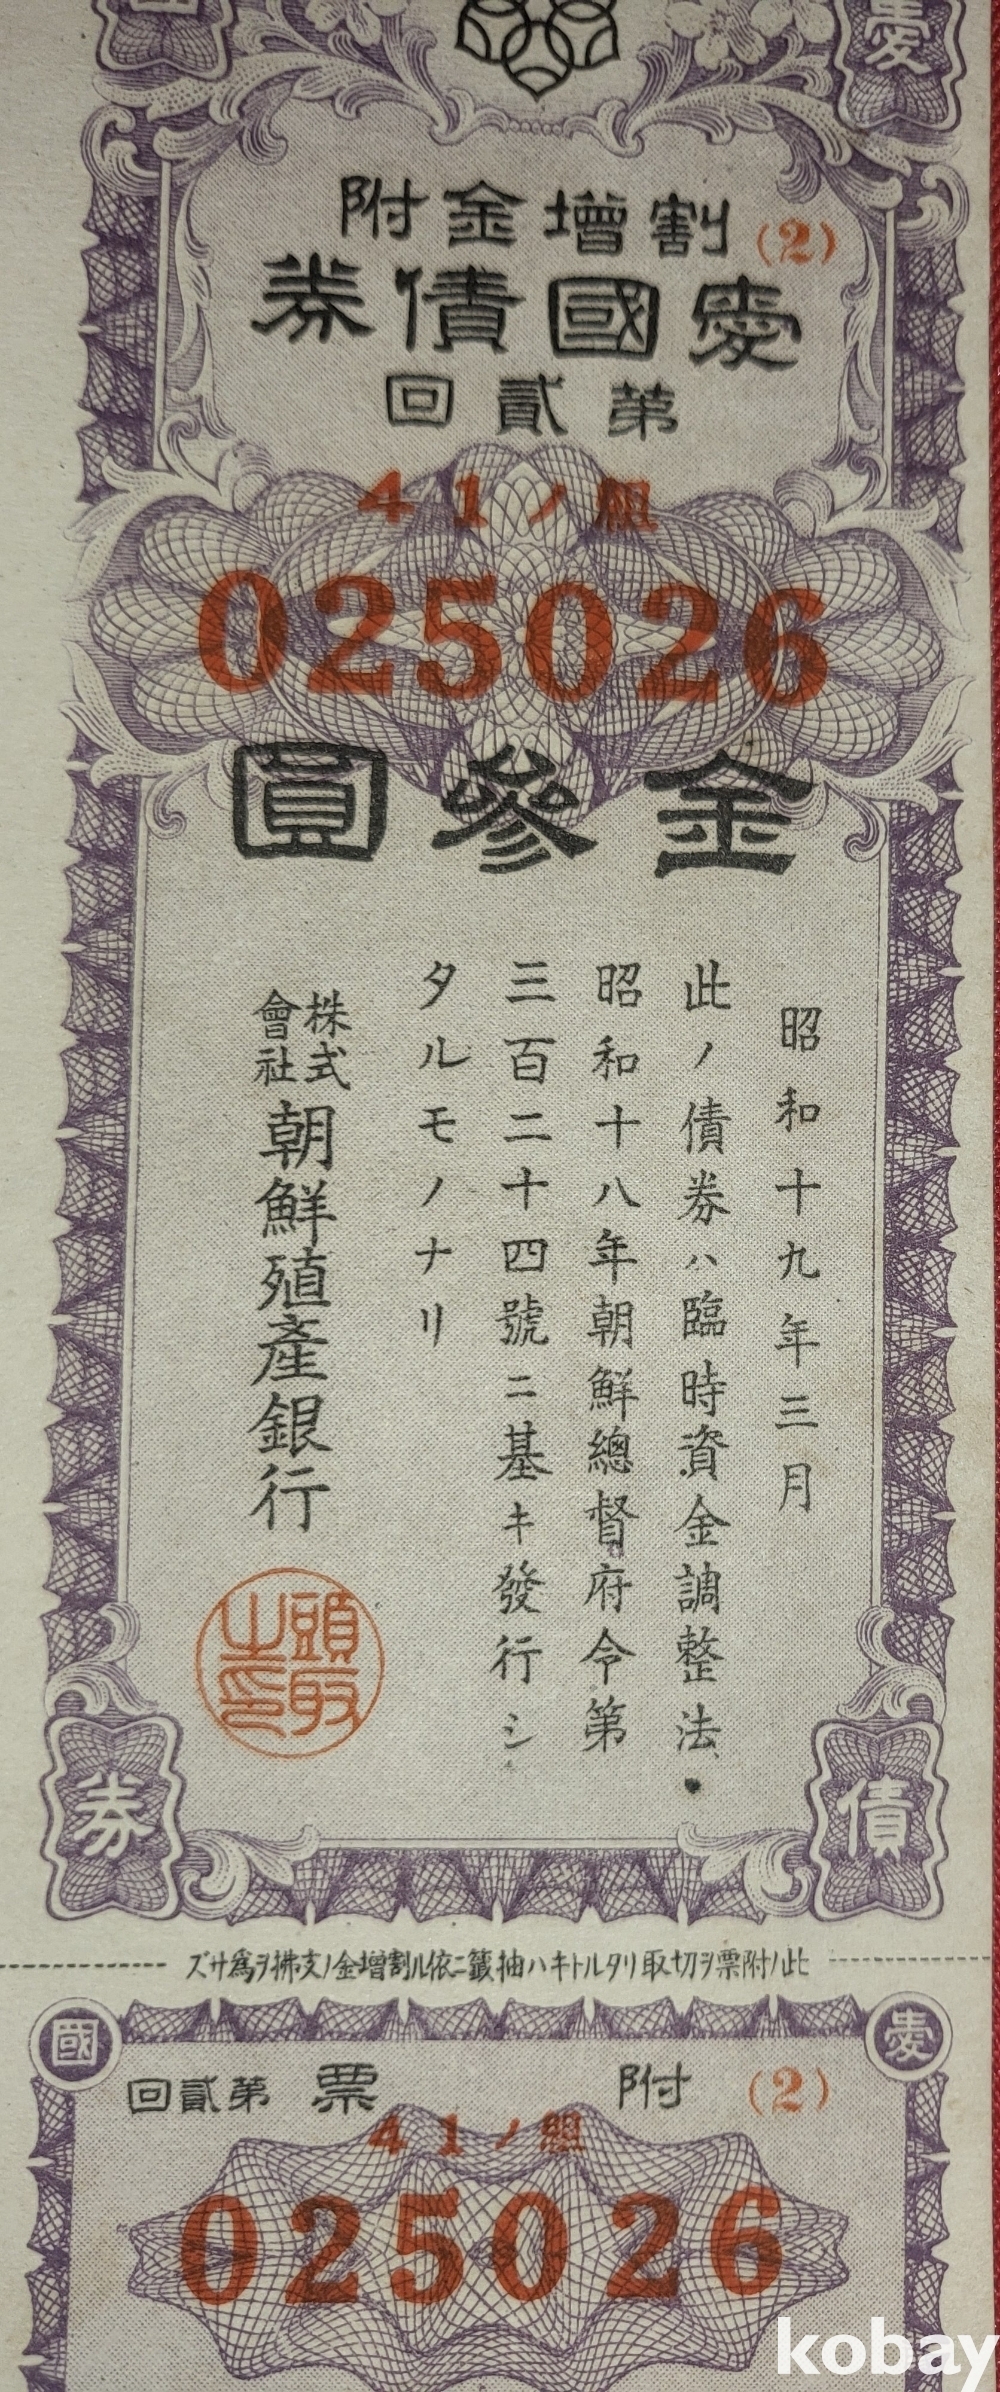 愛
割增金附
(2)
愛國債券
第貳回
41ノ組
025026
金參圓
昭和十九年三月
此ノ債券ハ臨時資金調整法、
昭和十八年朝鮮總督府令第
三百二十四號ニ基キ發行シ
タルモノナリ
株式會社朝鮮殖產銀行
頭取之印
債
券
此ノ附票ヲ切取リタルトキハ抽籤ニ依ル割增金ノ支拂ヲ爲サズ
愛
國
(2)
附票
第貳回
41ノ組
025026
kobay